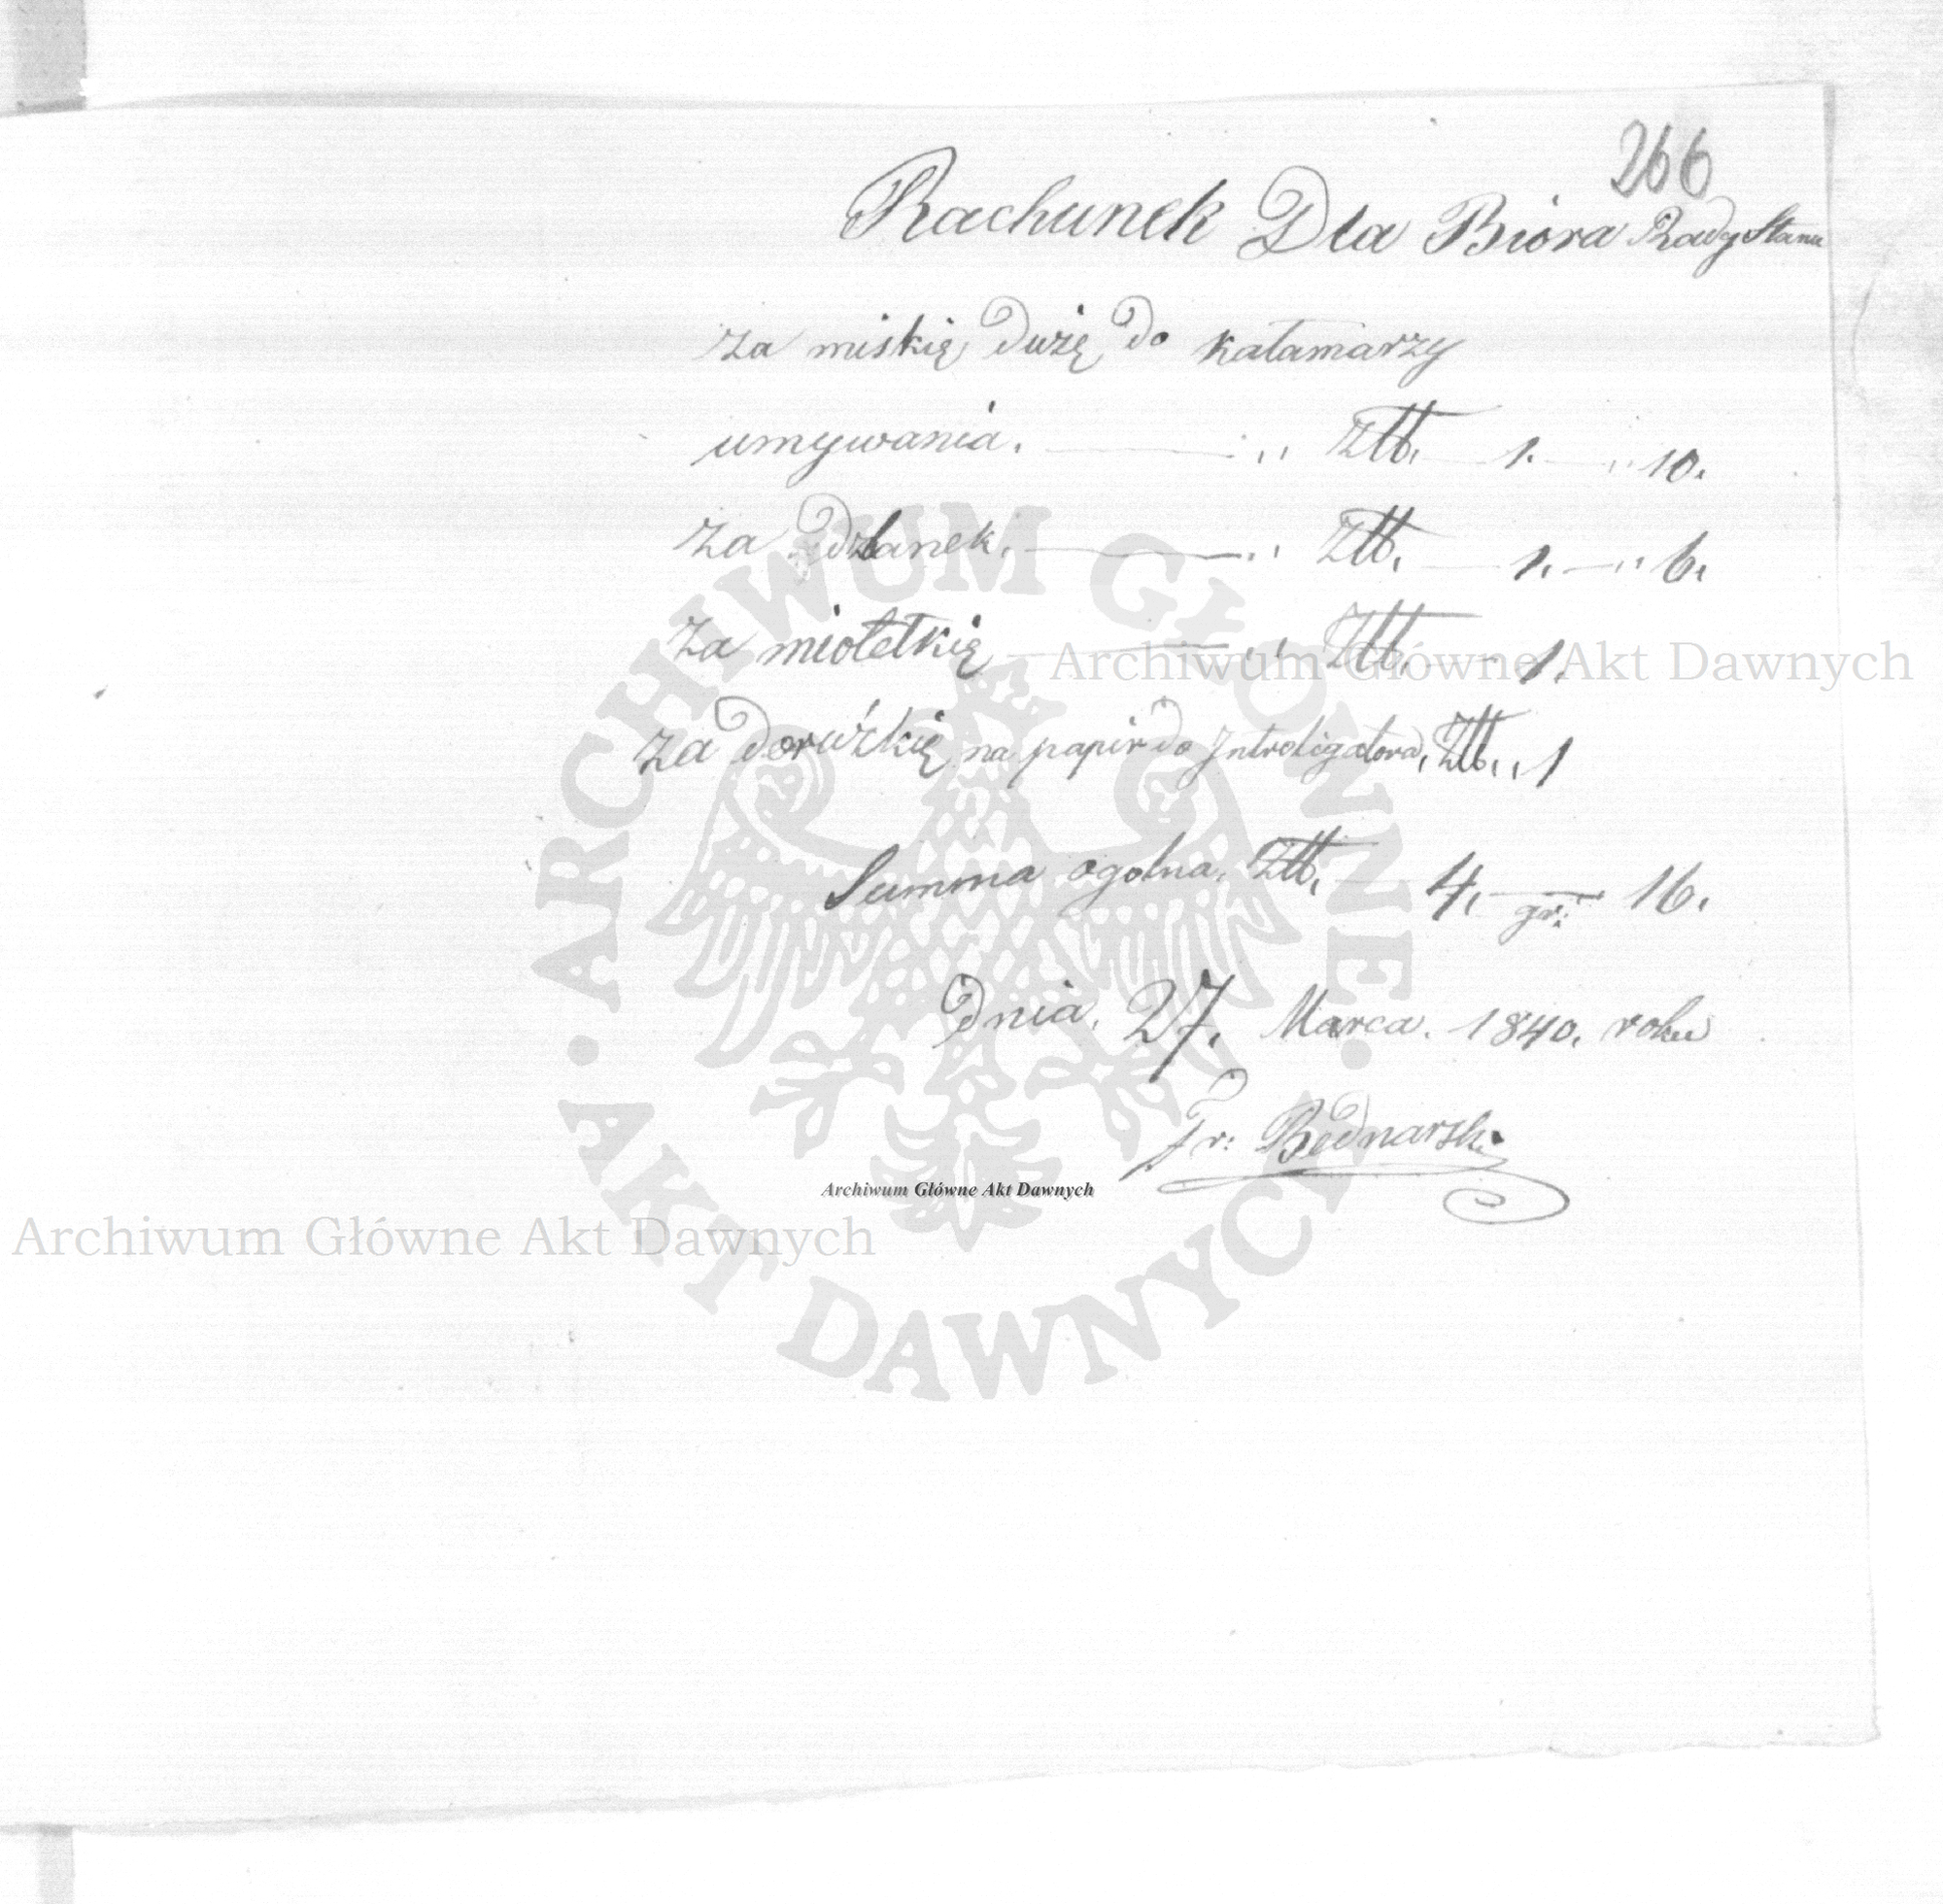 266
Rachunek Dla Biora Rady Stanu
za miskię dużę do kałamarzy
umywania. Złł. 1. 10.
za dzbanek. Złł. 1. 6.
za miotełkię Złł. 1.
za doruźkię na papir do Introligatora, Złł. 1
Summa ogolna. Złł. 4. gr: 16.
dnia. 27. Marca. 1840. roku
Fr: Bednarski
ARCHIWUM GŁÓWNE AKT DAWNYCH
Archiwum Główne Akt Dawnych
Archiwum Główne Akt Dawnych
Archiwum Główne Akt Dawnych